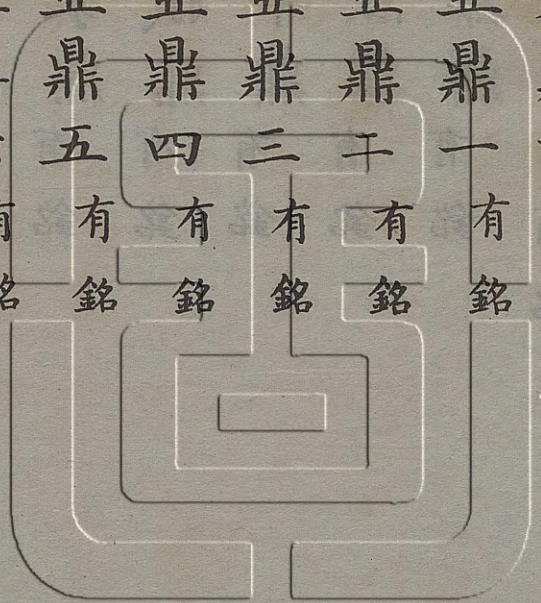 鼎一有銘
鼎二有銘
鼎三有銘
鼎四有銘
鼎五有銘
有銘